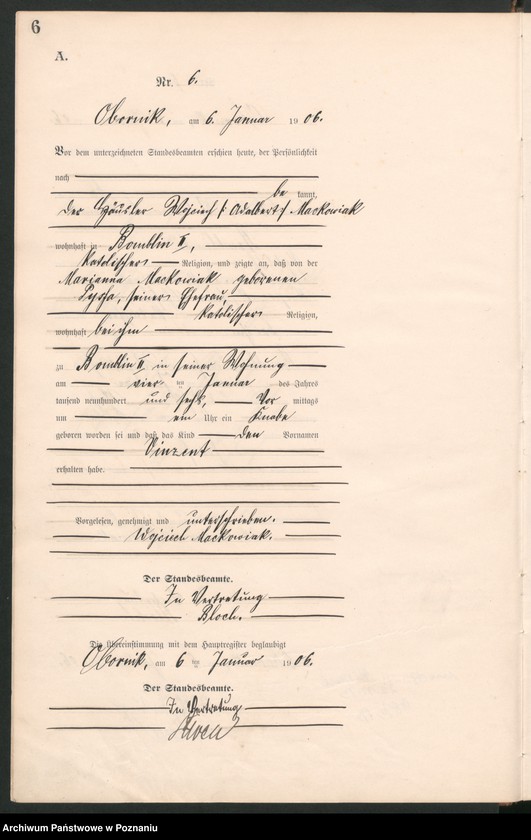 6
A.
Nr. 6.
Obornik, am 6. Januar 1906.
Vor dem unterzeichneten Standesbeamten erschien heute, der Persönlichkeit
nach
bekannt,
der Häusler Wojciech /: Adalbert :/ Mackowiak
wohnhaft in Bomblin II,
katolischer Religion, und zeigte an, daß von der
Marianna Mackowiak geborenen
seiner Ehefrau,
katolischer Religion,
wohnhaft bei ihm
zu Bomblin II in seiner Wohnung
am vier ten Januar des Jahres
tausend neunhundert und sechs, Vor mittags
um ein Uhr ein Knabe
geboren worden sei und daß das Kind den Vornamen
Vinzent
erhalten habe.
Vorgelesen, genehmigt und unterschrieben.
Wojciech Mackowiak.
Der Standesbeamte.
In Vertretung
Bloch.
Die Übereinstimmung mit dem Hauptregister beglaubigt
Obornik, am 6 ten Januar 1906.
Der Standesbeamte.
In Vertretung
Bloch
Archiwum Państwowe w Poznaniu